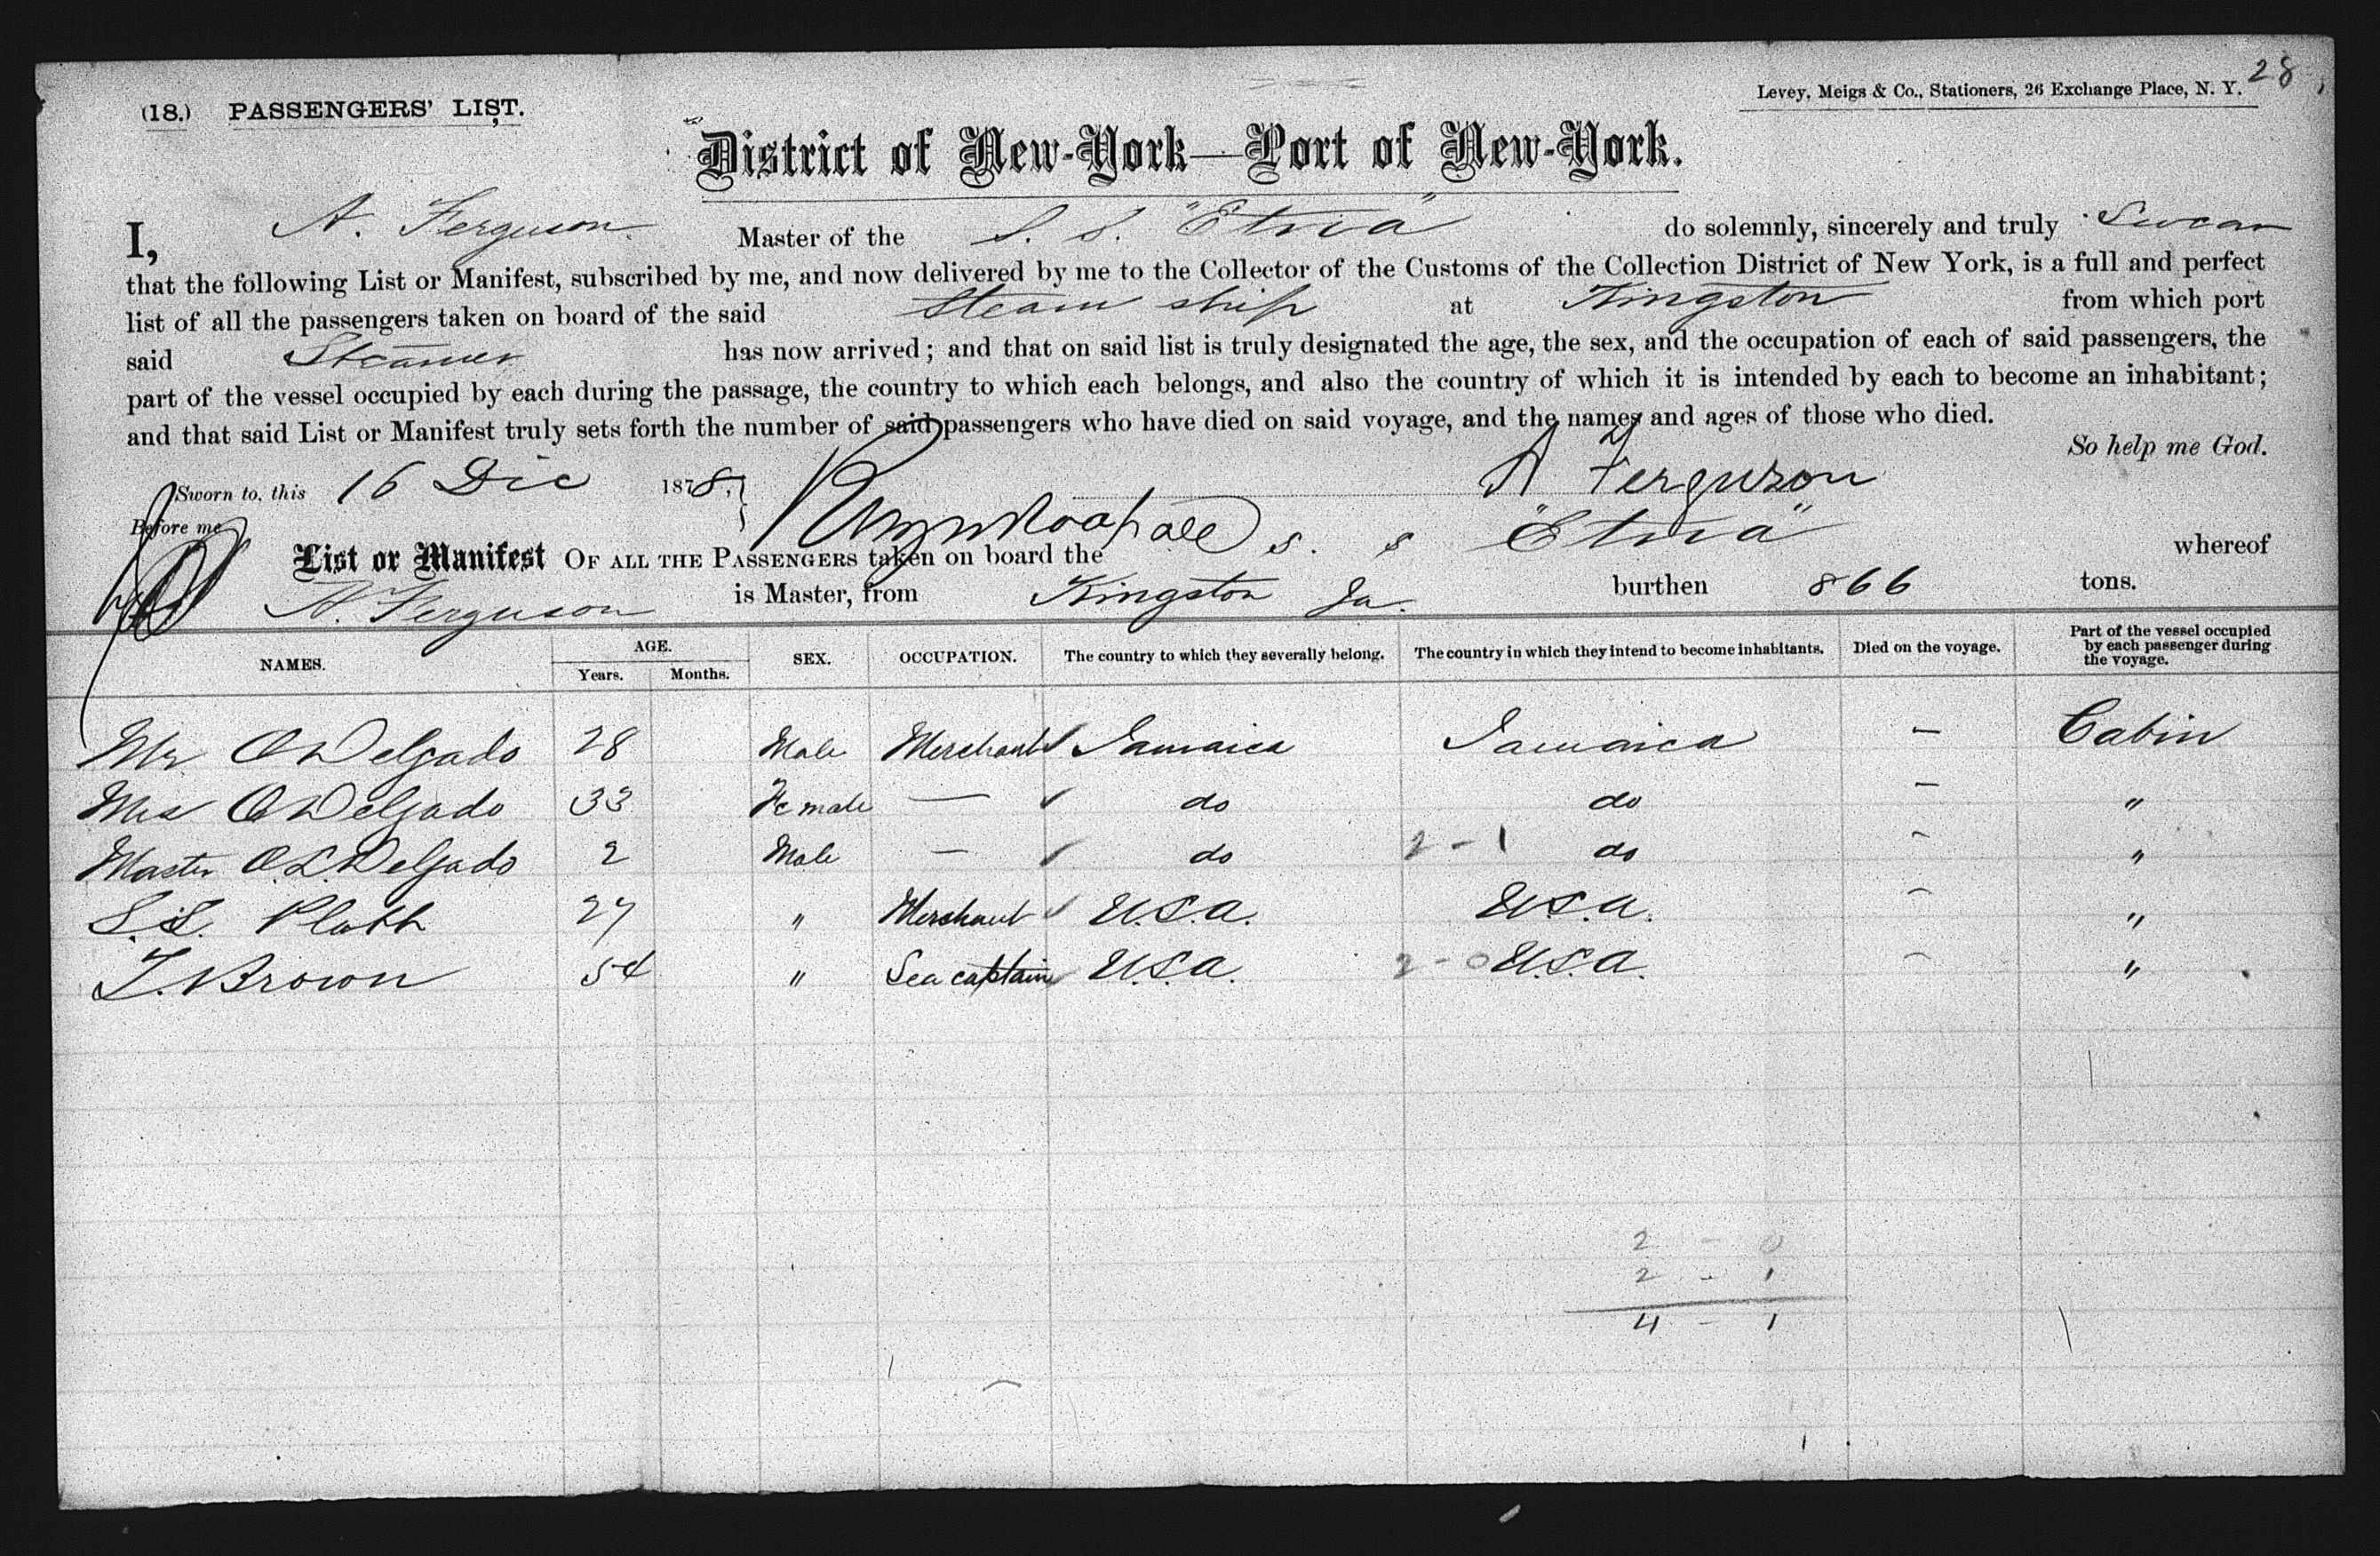 28
(18.) PASSENGERS' LIST. Levey, Meigs & Co., Stationers, 26 Exchange Place, N. Y.
District of New-York—Port of New-York.
I, A. Ferguson Master of the S. S. "Etna" do solemnly, sincerely and truly Swear
that the following List or Manifest, subscribed by me, and now delivered by me to the Collector of the Customs of the Collection District of New York, is a full and perfect
list of all the passengers taken on board of the said Steam ship at Kingston from which port
said Steamer has now arrived; and that on said list is truly designated the age, the sex, and the occupation of each of said passengers, the
part of the vessel occupied by each during the passage, the country to which each belongs, and also the country of which it is intended by each to become an inhabitant;
and that said List or Manifest truly sets forth the number of said passengers who have died on said voyage, and the names and ages of those who died.
So help me God.
Sworn to, this 16 Dec 1878, A Ferguson
Before me
List or Manifest OF ALL THE PASSENGERS taken on board the S. S "Etna" whereof
A. Ferguson is Master, from Kingston Ja. burthen 866 tons.
NAMES. AGE. Years. Months. SEX. OCCUPATION. The country to which they severally belong. The country in which they intend to become inhabitants. Died on the voyage. Part of the vessel occupied by each passenger during the voyage.
Mr O Delgado 28 Male Merchant Jamaica Jamaica — Cabin
Mrs O Delgado 33 Female — do do — "
Master O. L. Delgado 2 Male — do 2 - 1 do — "
S. L. Platt 27 " Merchant U.S.A. U.S.A. — "
T. Brown 54 " Sea captain U.S.A. 2 - 0 U.S.A. — "
2 - 0
2 - 1
4 - 1